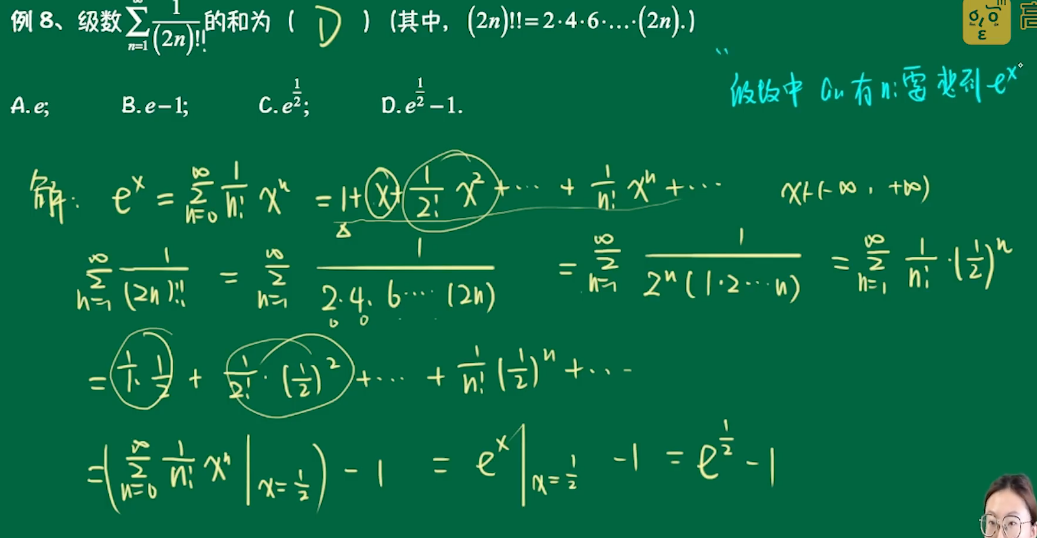 例 8、级数 $\sum_{n=1}^{\infty}\frac{1}{(2n)!!}$ 的和为（ D ）（其中，(2n)!!=2·4·6·…·(2n).）
高
A. e; B. e−1; C. $e^{\frac{1}{2}}$; D. $e^{\frac{1}{2}}-1$.
中 $a_n$ 有 n! 需 到 $e^x$
解: $e^x = \sum_{n=0}^{\infty}\frac{1}{n!}x^n = 1+x+\frac{1}{2!}x^2+\cdots+\frac{1}{n!}x^n+\cdots$ x∈(-∞, +∞)
$\sum_{n=1}^{\infty}\frac{1}{(2n)!!} = \sum_{n=1}^{\infty}\frac{1}{2\cdot 4\cdot 6\cdots(2n)} = \sum_{n=1}^{\infty}\frac{1}{2^n(1\cdot 2\cdots n)} = \sum_{n=1}^{\infty}\frac{1}{n!}\cdot(\frac{1}{2})^n$
$= \frac{1}{1}\cdot\frac{1}{2}+\frac{1}{2!}\cdot(\frac{1}{2})^2+\cdots+\frac{1}{n!}(\frac{1}{2})^n+\cdots$
$= (\sum_{n=0}^{\infty}\frac{1}{n!}x^n|_{x=\frac{1}{2}})-1 = e^x|_{x=\frac{1}{2}}-1 = e^{\frac{1}{2}}-1$